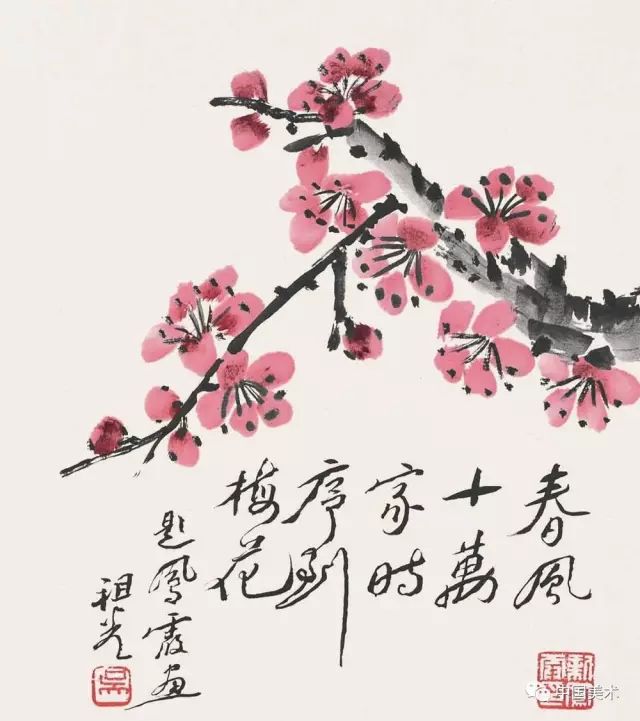 春風
十萬
家時
序到
梅花
題鳳霞畫
祖光
吳
中国美术